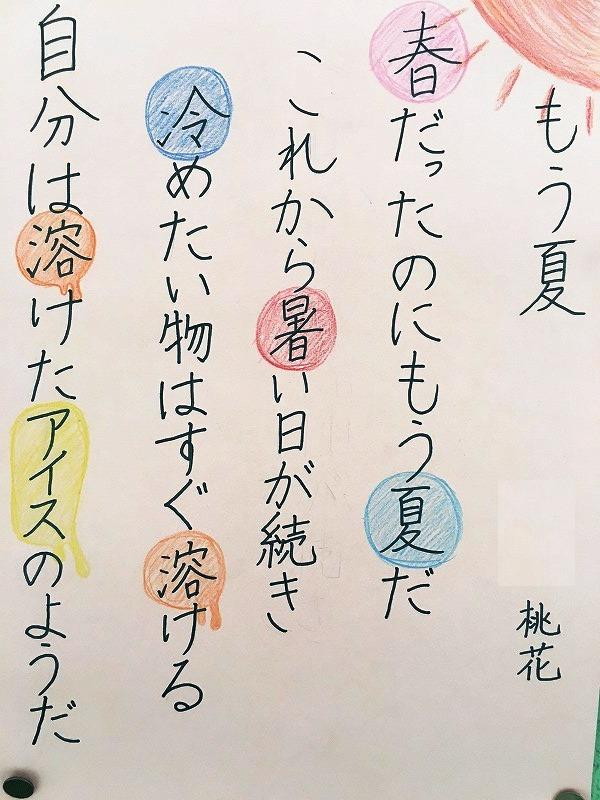 もう夏
桃花
春だったのにもう夏だ
これから暑い日が続き
冷めたい物はすぐ溶ける
自分は溶けたアイスのようだ